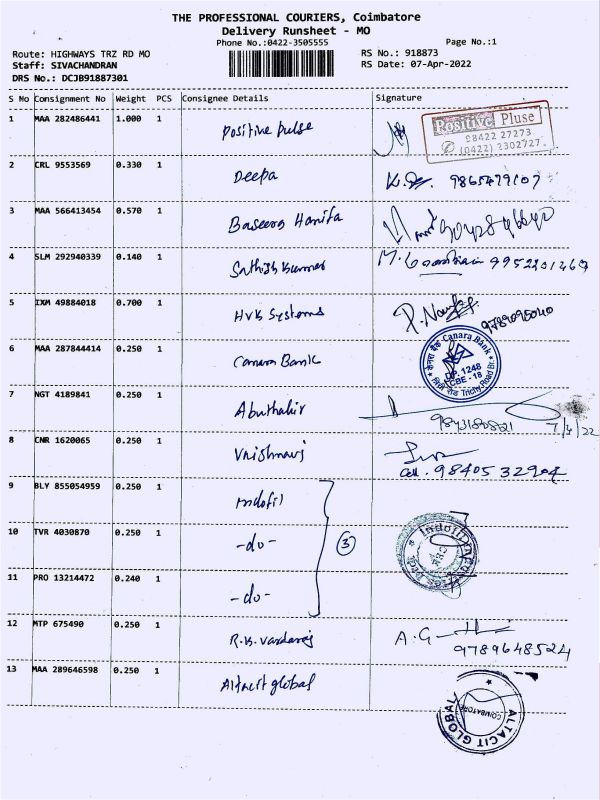 THE PROFESSIONAL COURIERS, Coimbatore
Delivery Runsheet - MO
Phone No.:0422-3505555
Page No.:1
Route: HIGHWAYS TRZ RD MO
RS No.: 918873
Staff: SIVACHANDRAN
RS Date: 07-Apr-2022
DRS No.: DCJB91887301
S No Consignment No Weight PCS Consignee Details Signature
1 MAA 282486441 1.000 1 Positive Pulse
Positive Pluse
98422 27273
(0422) 2302727
2 CRL 9553569 0.330 1 Deepa 9865479107
3 MAA 566413454 0.570 1 Baseera Hanifa
4 SLM 292940339 0.140 1 Sathish kumar 9952201269
5 IXM 49884018 0.700 1 HVK Systems 9789095040
6 MAA 287844414 0.250 1 Canara Bank
केनरा बैंक Canara Bank
DP. 1248
CBE - 18
Trichy Road Br.
7 NGT 4189841 0.250 1 Abuthahir 7/4/22
8 CNR 1620065 0.250 1 Vaishnavi
Cell. 9840532904
9 BLY 855054959 0.250 1 Indofil
10 TVR 4030870 0.250 1 -do- 3
11 PRO 13214472 0.240 1 -do-
12 MTP 675490 0.250 1 R.K. Vardaraj A.G
9789648524
13 MAA 289646598 0.250 1 Altacit global
ALTACIT GLOBAL
COIMBATORE